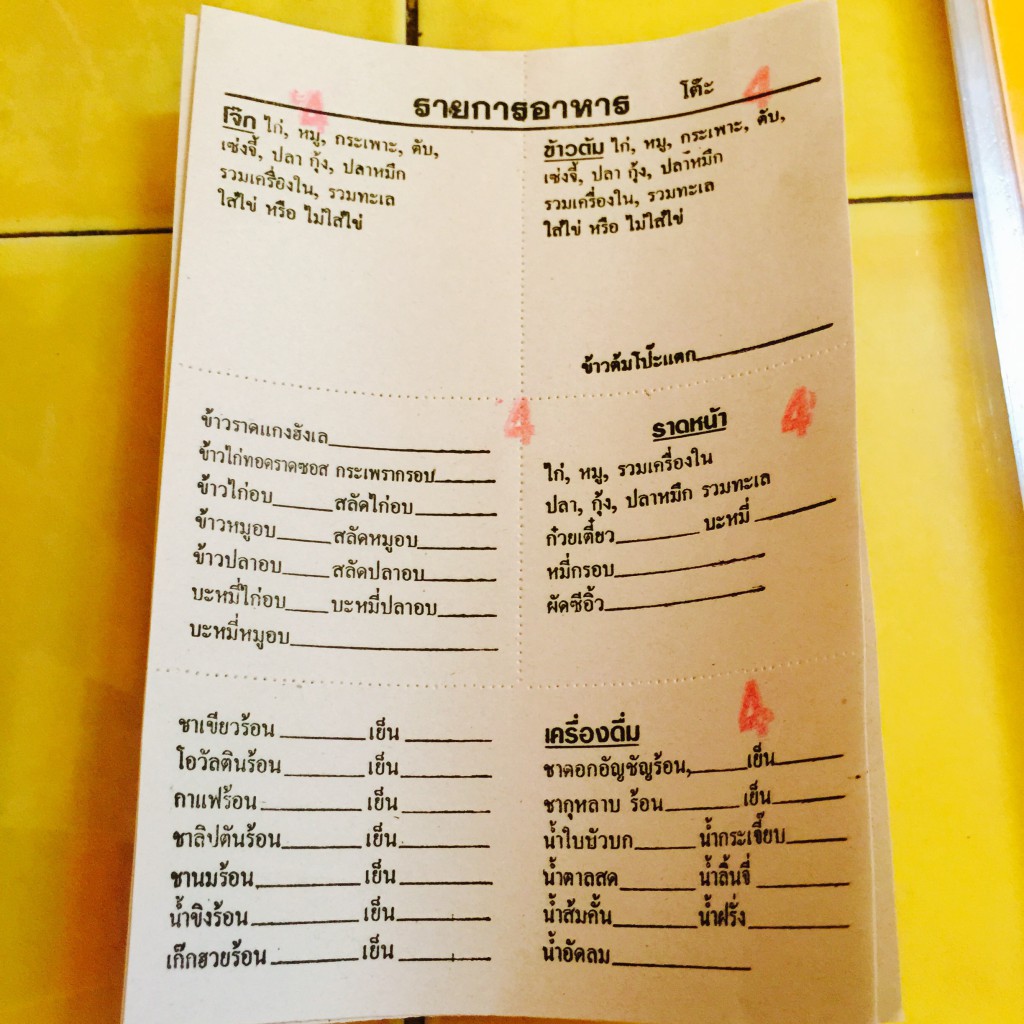 รายการอาหาร โต๊ะ 4
4
โจ๊ก ไก่, หมู, กระเพาะ, ตับ,
เซ่งจี้, ปลา กุ้ง, ปลาหมึก
รวมเครื่องใน, รวมทะเล
ใส่ไข่ หรือ ไม่ใส่ไข่
ข้าวต้ม ไก่, หมู, กระเพาะ, ตับ,
เซ่งจี้, ปลา กุ้ง, ปลาหมึก
รวมเครื่องใน, รวมทะเล
ใส่ไข่ หรือ ไม่ใส่ไข่
ข้าวต้มโป๊ะแตก
4
ข้าวราดแกงฮังเล
ข้าวไก่ทอดราดซอส กระเพรากรอบ
ข้าวไก่อบ สลัดไก่อบ
ข้าวหมูอบ สลัดหมูอบ
ข้าวปลาอบ สลัดปลาอบ
บะหมี่ไก่อบ บะหมี่ปลาอบ
บะหมี่หมูอบ
4
ราดหน้า
ไก่, หมู, รวมเครื่องใน
ปลา, กุ้ง, ปลาหมึก รวมทะเล
ก๋วยเตี๋ยว บะหมี่
หมี่กรอบ
ผัดซีอิ้ว
ชาเขียวร้อน เย็น
โอวัลตินร้อน เย็น
กาแฟร้อน เย็น
ชาลิปตันร้อน เย็น
ชานมร้อน เย็น
น้ำขิงร้อน เย็น
เก๊กฮวยร้อน เย็น
4
เครื่องดื่ม
ชาดอกอัญชัญร้อน, เย็น
ชากุหลาบ ร้อน เย็น
น้ำใบบัวบก น้ำกระเจี๊ยบ
น้ำตาลสด น้ำลิ้นจี่
น้ำส้มคั้น น้ำฝรั่ง
น้ำอัดลม